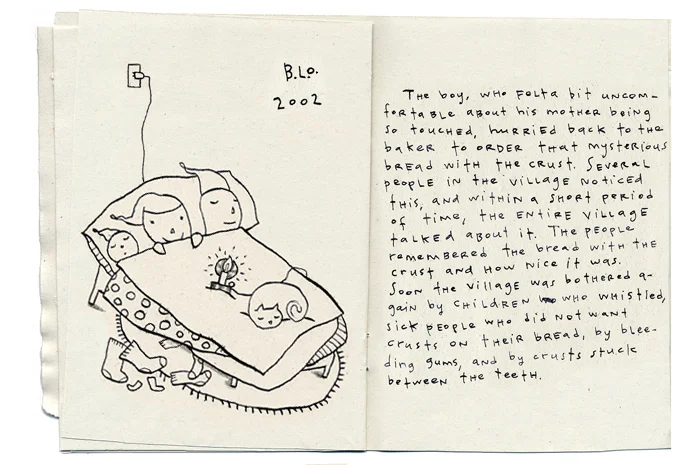 B.Lo.
2002
The boy, who folt a bit uncom-
fortable about his mother being
so touched, hurried back to the
baker to order that mysterious
bread with the crust. Several
people in the village noticed
this, and within a short period
of time, the entire village
talked about it. The people
remembered the bread with the
crust and how nice it was.
Soon the village was bothered a-
gain by children who whistled,
sick people who did not want
crusts on their bread, by blee-
ding gums, and by crusts stuck
between the teeth.